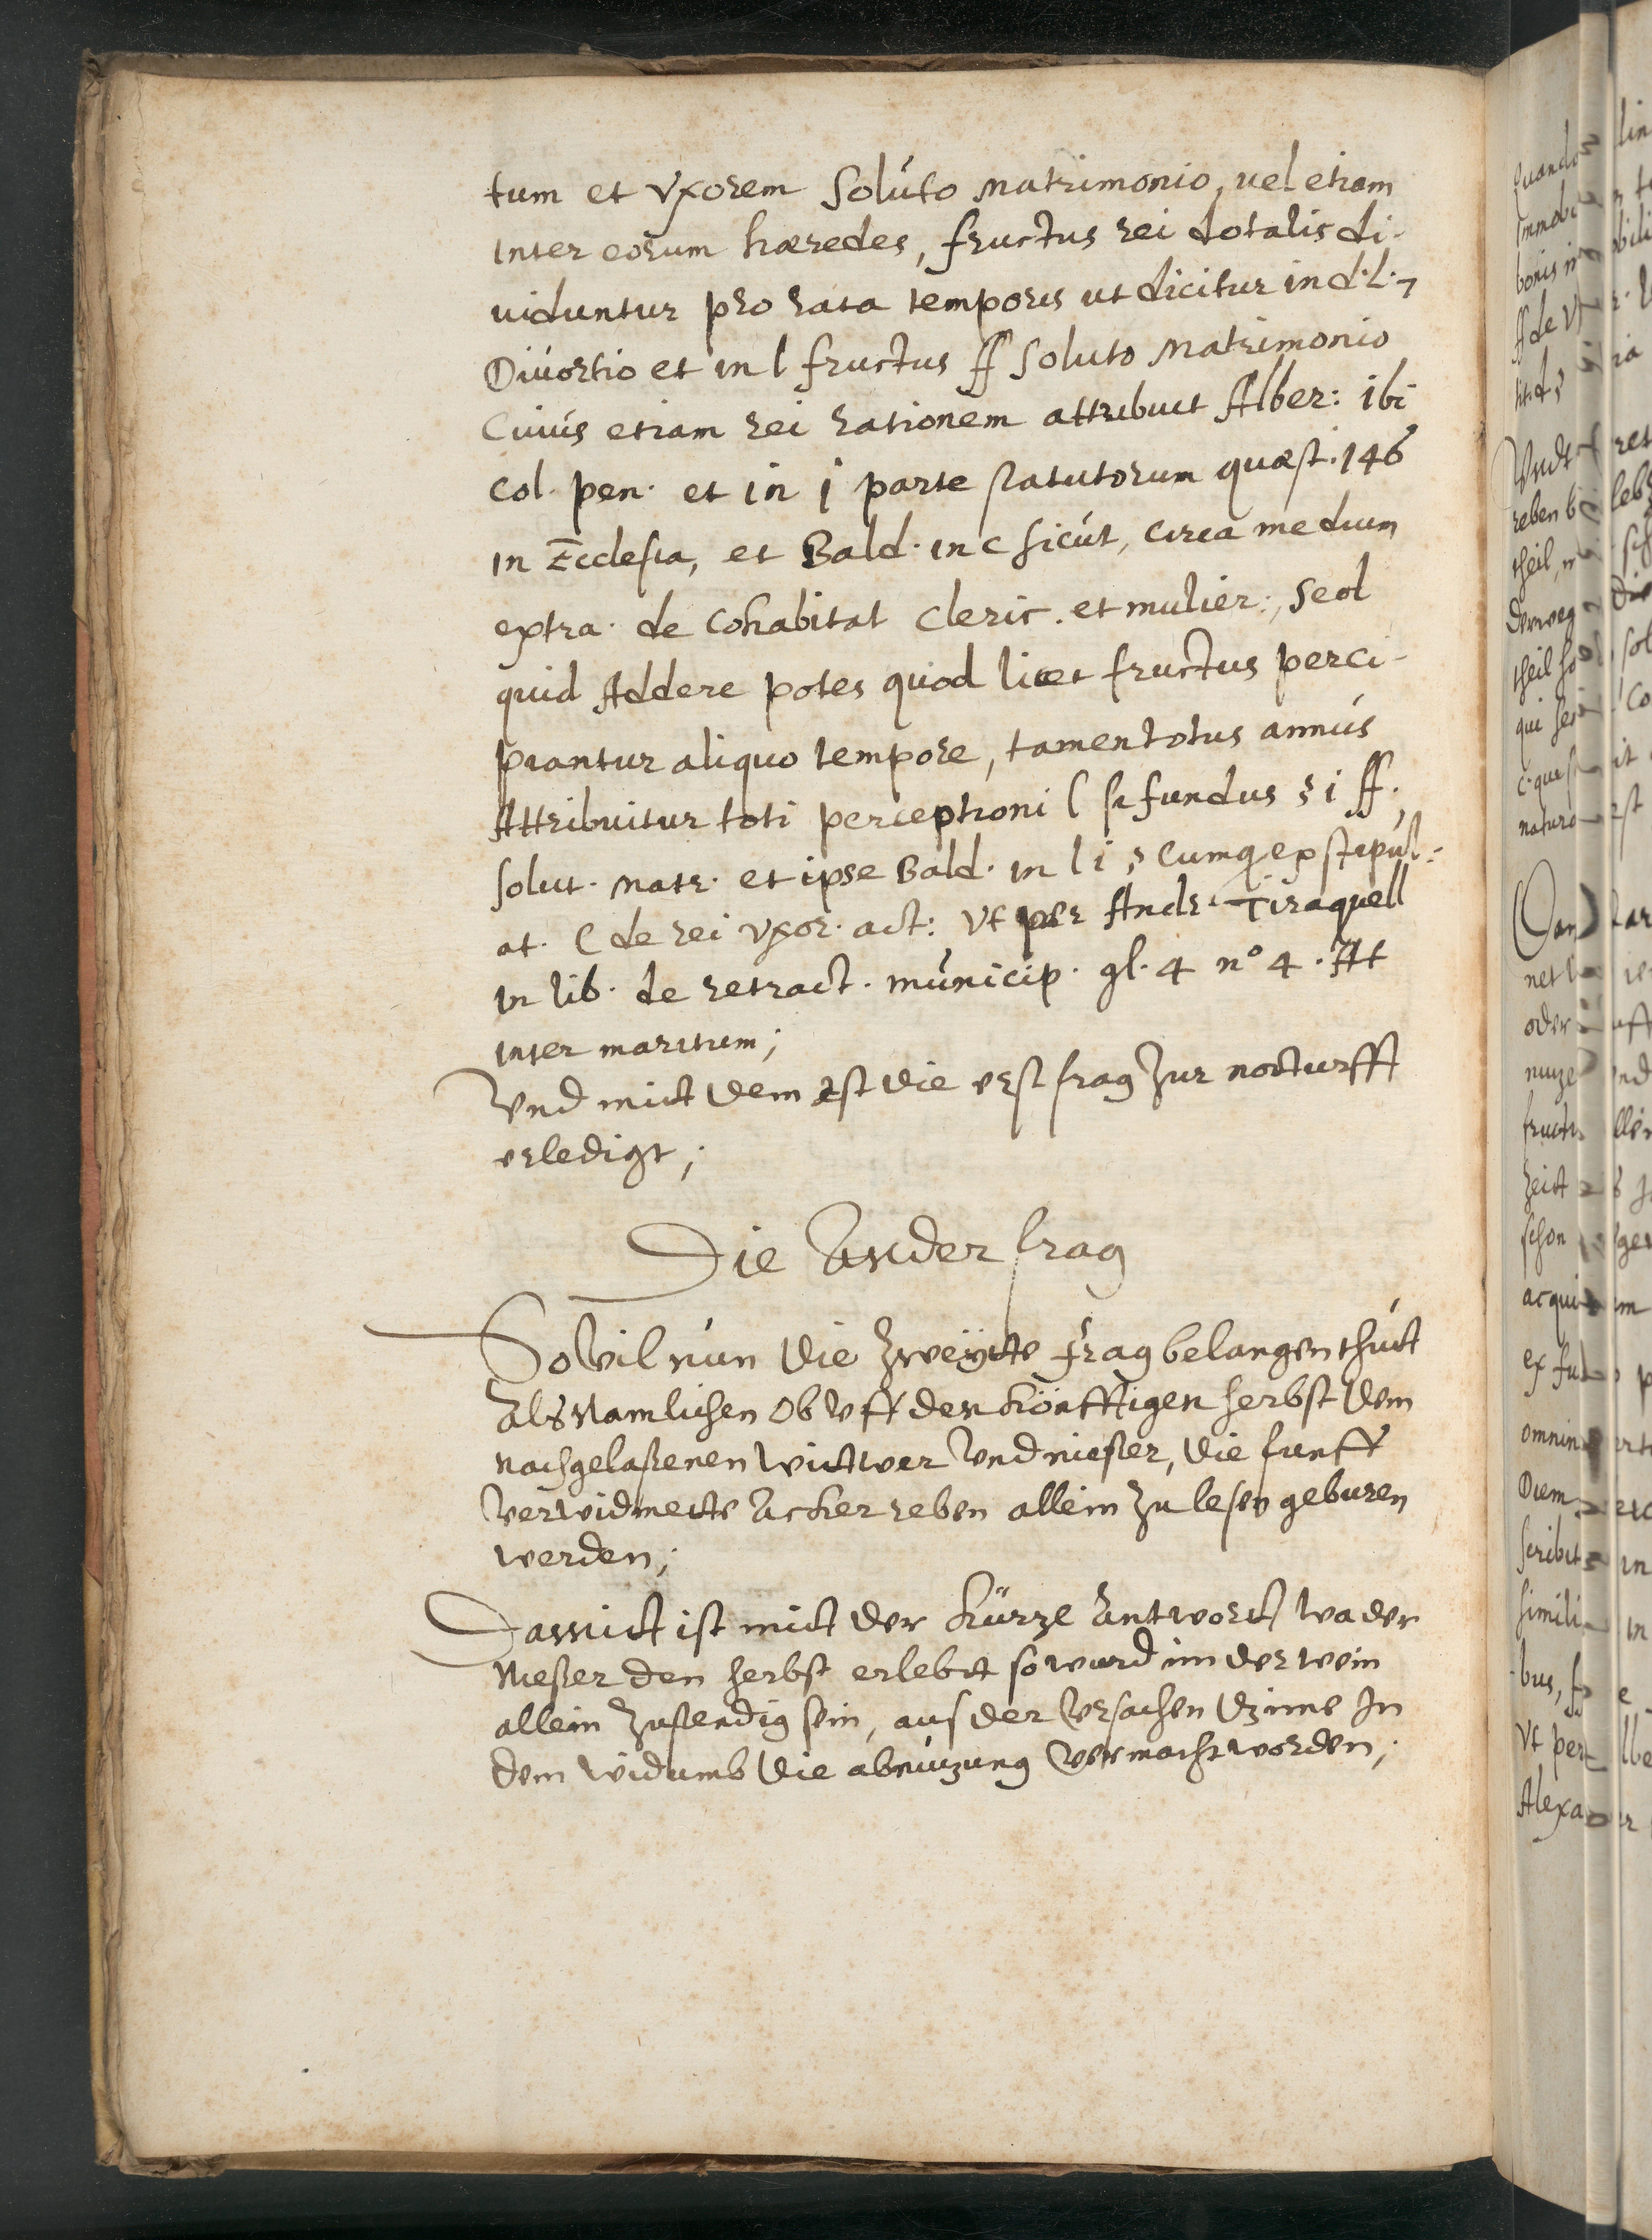 tum et vxorem soluto matrimonio, vel etiam
inter eorum hæredes, fructus rei dotalis di-
uiduntur pro rata temporis ut dicitur in d. l. 7
Diuortio et in l fructus ff soluto Matrimonio
Cuius etiam rei rationem attribuit Alber: ibi
col. pen. et in j parte statutorum quæst. 146
in Ecclesia, et Bald. in c sicut, circa medium
extra. de Cohabitat Cleric. et mulier:, sed
quid Addere potes quod licet fructus perci-
piantur aliquo tempore, tamen totus annus
Attribuitur toti perceptioni l si fundus § i ff.
solut. Matr. et ipse Bald. in l i § Cumq ex stipul-
at. C de rei vxor. act: vt per Andr. Tiraquell
in lib. de retract. municip. gl. 4 n° 4. At
inter maritum;
Vnd mit dem ist die erst frag zur notturfft
erledigt;
Die Ander frag
Sovil nun die zweyte frag belangen thut
Als Namlichen Ob vff den könfftigen herbst dem
nachgelaßenen witwer vnd nießer, die funff
verwidmete Acker reben allein zu lesen geburen
werden;
Damit ist mit der kürze Antwort, wa der
Nießer den herbst erlebt so wurd im der wein
allein zustendig sein, aus der Vrsachen dz ime In
dem widumb die abnuzung vermacht worden;